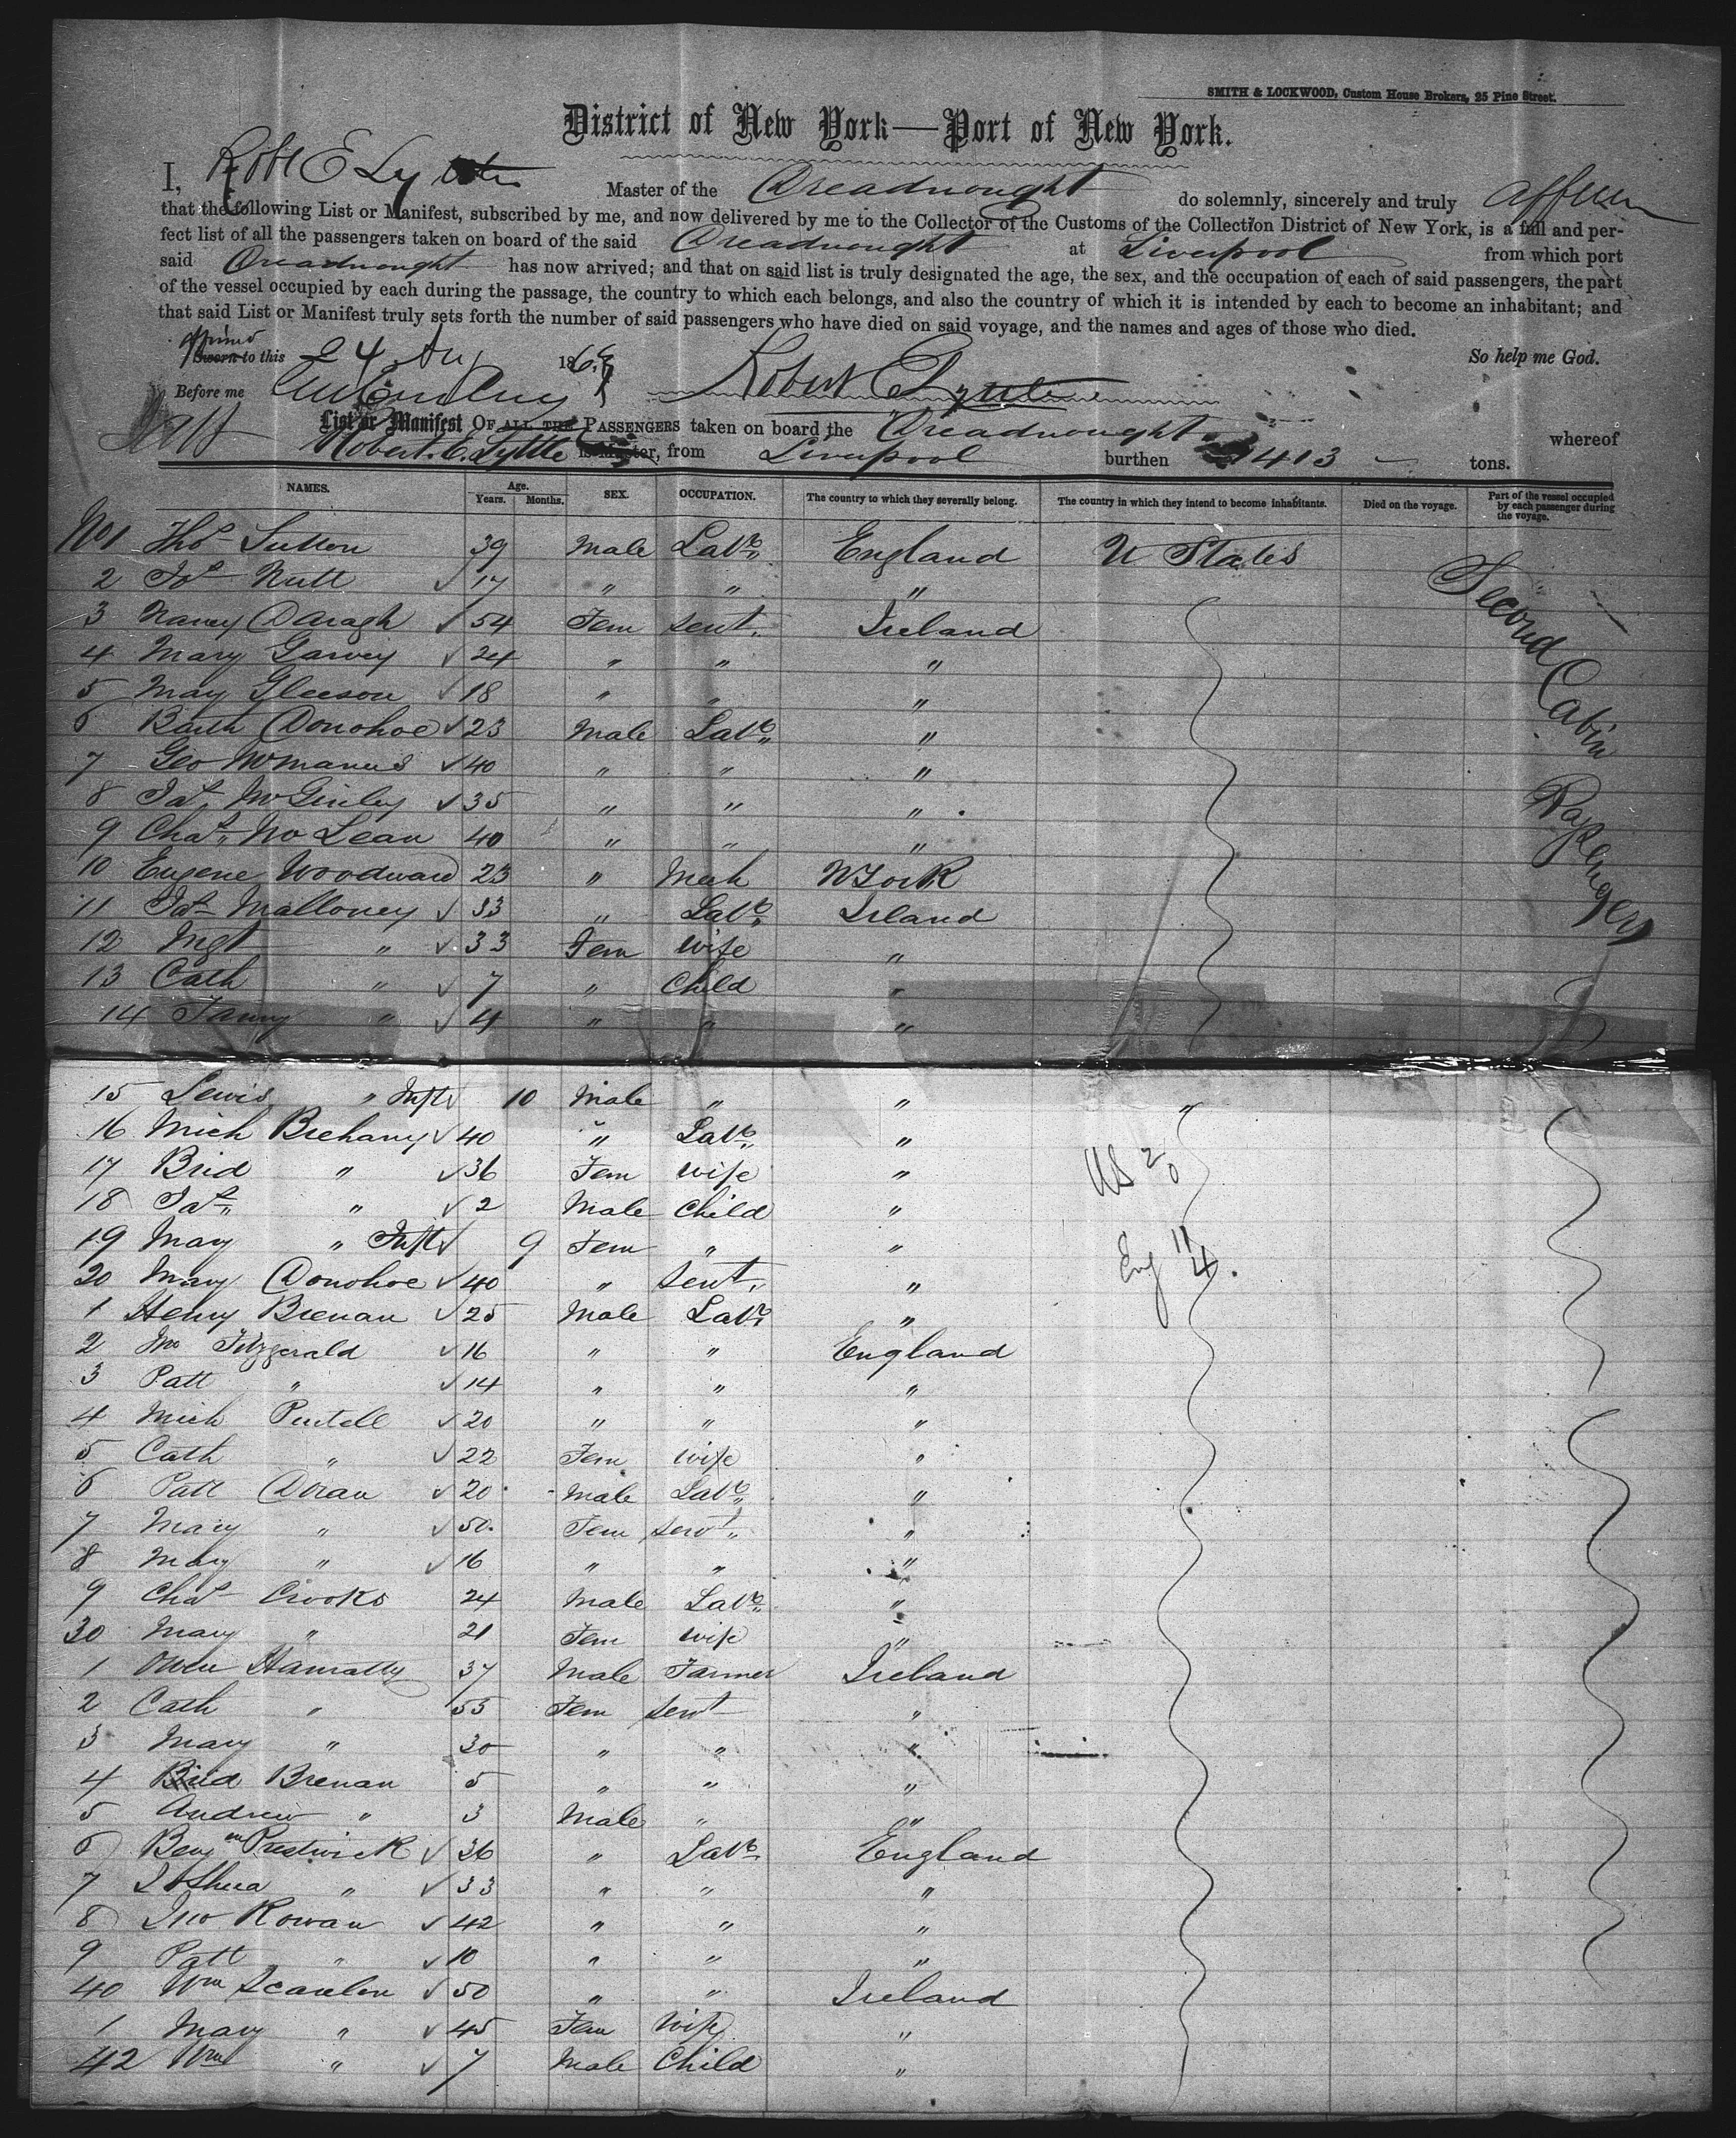 SMITH & LOCKWOOD, Custom House Brokers, 25 Pine Street.
District of New York—Port of New York.
I, Robt E Lyttle Master of the Dreadnought do solemnly, sincerely and truly affirm
that the following List or Manifest, subscribed by me, and now delivered by me to the Collector of the Customs of the Collection District of New York, is a full and per-
fect list of all the passengers taken on board of the said Dreadnought at Liverpool from which port
said Dreadnought has now arrived; and that on said list is truly designated the age, the sex, and the occupation of each of said passengers, the part
of the vessel occupied by each during the passage, the country to which each belongs, and also the country of which it is intended by each to become an inhabitant; and
that said List or Manifest truly sets forth the number of said passengers who have died on said voyage, and the names and ages of those who died.
affirmed
Sworn to this 24 Aug 186 So help me God.
Before me Robert E Lyttle
List or Manifest OF ALL THE PASSENGERS taken on board the Dreadnought whereof
Robert. E. Lyttle is Master, from Liverpool burthen 1413 tons.
NAMES. Age. Years. Months. SEX. OCCUPATION. The country to which they severally belong. The country in which they intend to become inhabitants. Died on the voyage. Part of the vessel occupied by each passenger during the voyage.
No 1 Thos Sutton 39 Male Labr England U States
2 Jas Nutt 17 " " "
3 Nancy Daragh 54 Fem Servt Ireland
4 Mary Garvey 24 " " "
5 Mary Gleeson 18 " " "
6 Barth Donohoe 23 Male Labr "
7 Geo McManus 40 " " "
8 Jas McGinley 35 " " "
9 Chas McLean 40 " " "
10 Eugene Woodward 23 " Mech N York
11 Jas Malloney 33 " Labr Ireland
12 Mgt " 33 Fem Wife "
13 Cath " 7 " Child "
14 Fanny " 4 " " "
Second Cabin Passengers
15 Lewis " Inft 10 Male " " "
16 Mich Brehany 40 " Labr "
17 Brid " 36 Fem Wife "
US 20
18 Jas " 2 Male Child "
19 Mary " Inft 9 Fem " "
Eng 11
4
20 Mary Donohoe 40 " Servt "
1 Henry Brenan 25 Male Labr "
2 Jno Fitzgerald 16 " " England
3 Patt " 14 " " "
4 Mich Purtell 20 " " "
5 Cath " 22 Fem Wife "
6 Patt Doran 20 Male Labr "
7 Mary " 50 Fem Servt "
8 Mary " 16 " " "
9 Chas Crooks 24 Male Labr "
30 Mary " 21 Fem Wife "
1 Owen Hanratty 37 Male Farmer Ireland
2 Cath " 55 Fem Servt "
3 Mary " 30 " " "
4 Brid Brenan 5 " " "
5 Andrew " 3 Male " "
6 Benjm Prestwick 36 " Labr England
7 Joshua " 33 " " "
8 Jno Rowan 42 " " "
9 Patt " 10 " " "
40 Wm Scanlon 50 " " Ireland
1 Mary " 45 Fem Wife "
42 Wm " 7 Male Child "